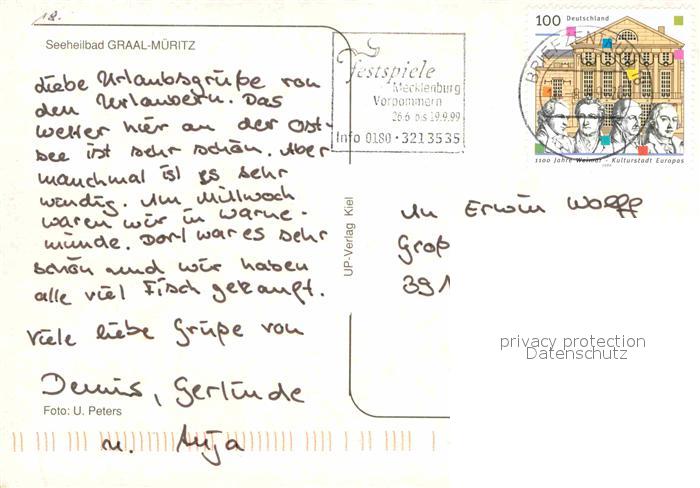 18.
Seeheilbad GRAAL-MÜRITZ
Liebe Urlaubsgrüße von
den Urlaubern. Das
Wetter hier an der Ost-
see ist sehr schön. Aber
manchmal ist es sehr
windig. Am Mittwoch
waren wir in Warne-
münde. Dort war es sehr
schön und wir haben
alle viel Fisch gekauft.
Viele liebe Grüße von
Dennis, Gerlinde
u. Anja
Foto: U. Peters
UP-Verlag Kiel
festspiele
Mecklenburg
Vorpommern
26.6 bis 19.9.99
Info 0180 · 3213535
100 Deutschland
BRIEFZENTRUM
1100 Jahre Weimar - Kulturstadt Europas
An Erwin Wolff
Groß
391
privacy protection
Datenschutz